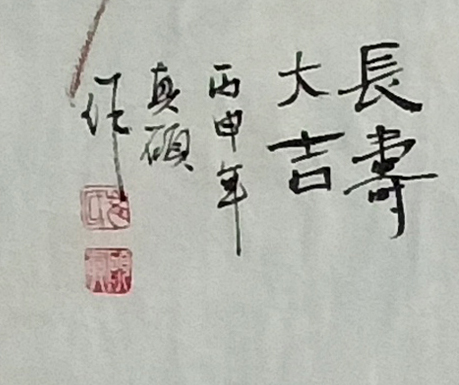 長壽
大吉
丙申年
真碩
作